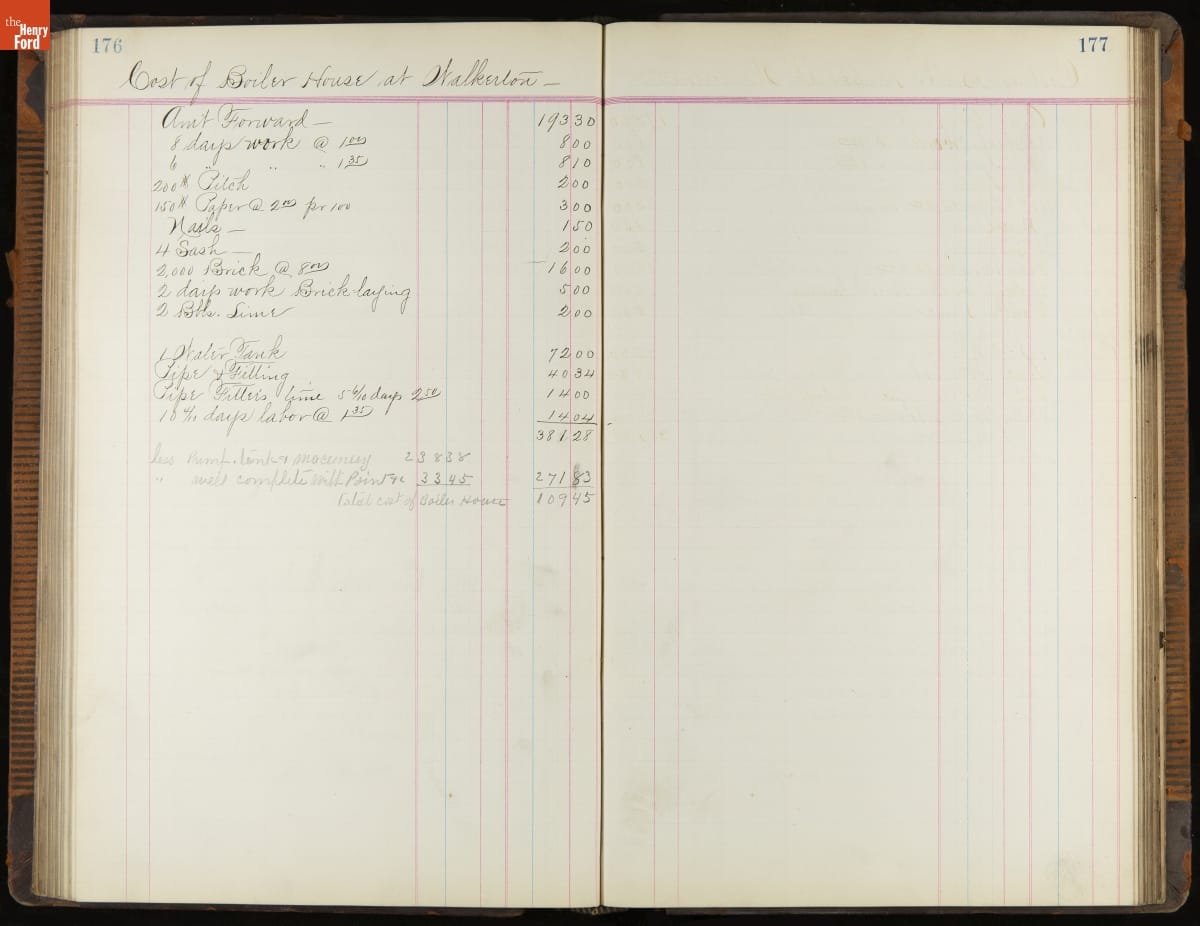 the Henry Ford
176
177
Cost of Boiler House at Walkerton —
Amt Forward — 193 30
8 days work @ 1 00 8 00
6 " " " 1 35 8 10
200 # Pitch 2 00
150 # Paper @ 2 00 pr 100 3 00
Nails — 1 50
4 Sash — 2 00
2,000 Brick @ 8 00 16 00
2 days work Brick-laying 5 00
2 Bbls. Lime 2 00
1 Water Tank 72 00
Pipe & Fitting 40 34
Pipe Fitters time 5 6/10 days 2 50 14 00
10 4/10 days labor @ 1 35 14 04
381 28
less Pump. tank & Macenery 238 38
" well complete with Point &c 33 45 271 83
Total cost of Boiler House 109 45